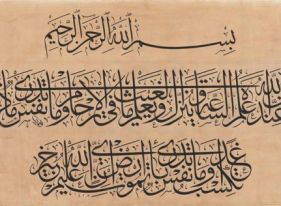 بسم الله الرحمن الرحيم
الله عنده علم الساعة وينزل الغيث ويعلم ما في الأرحام وما تدري نفس ماذا
تكسب غدا وما تدري نفس بأي أرض تموت إن الله عليم خبير